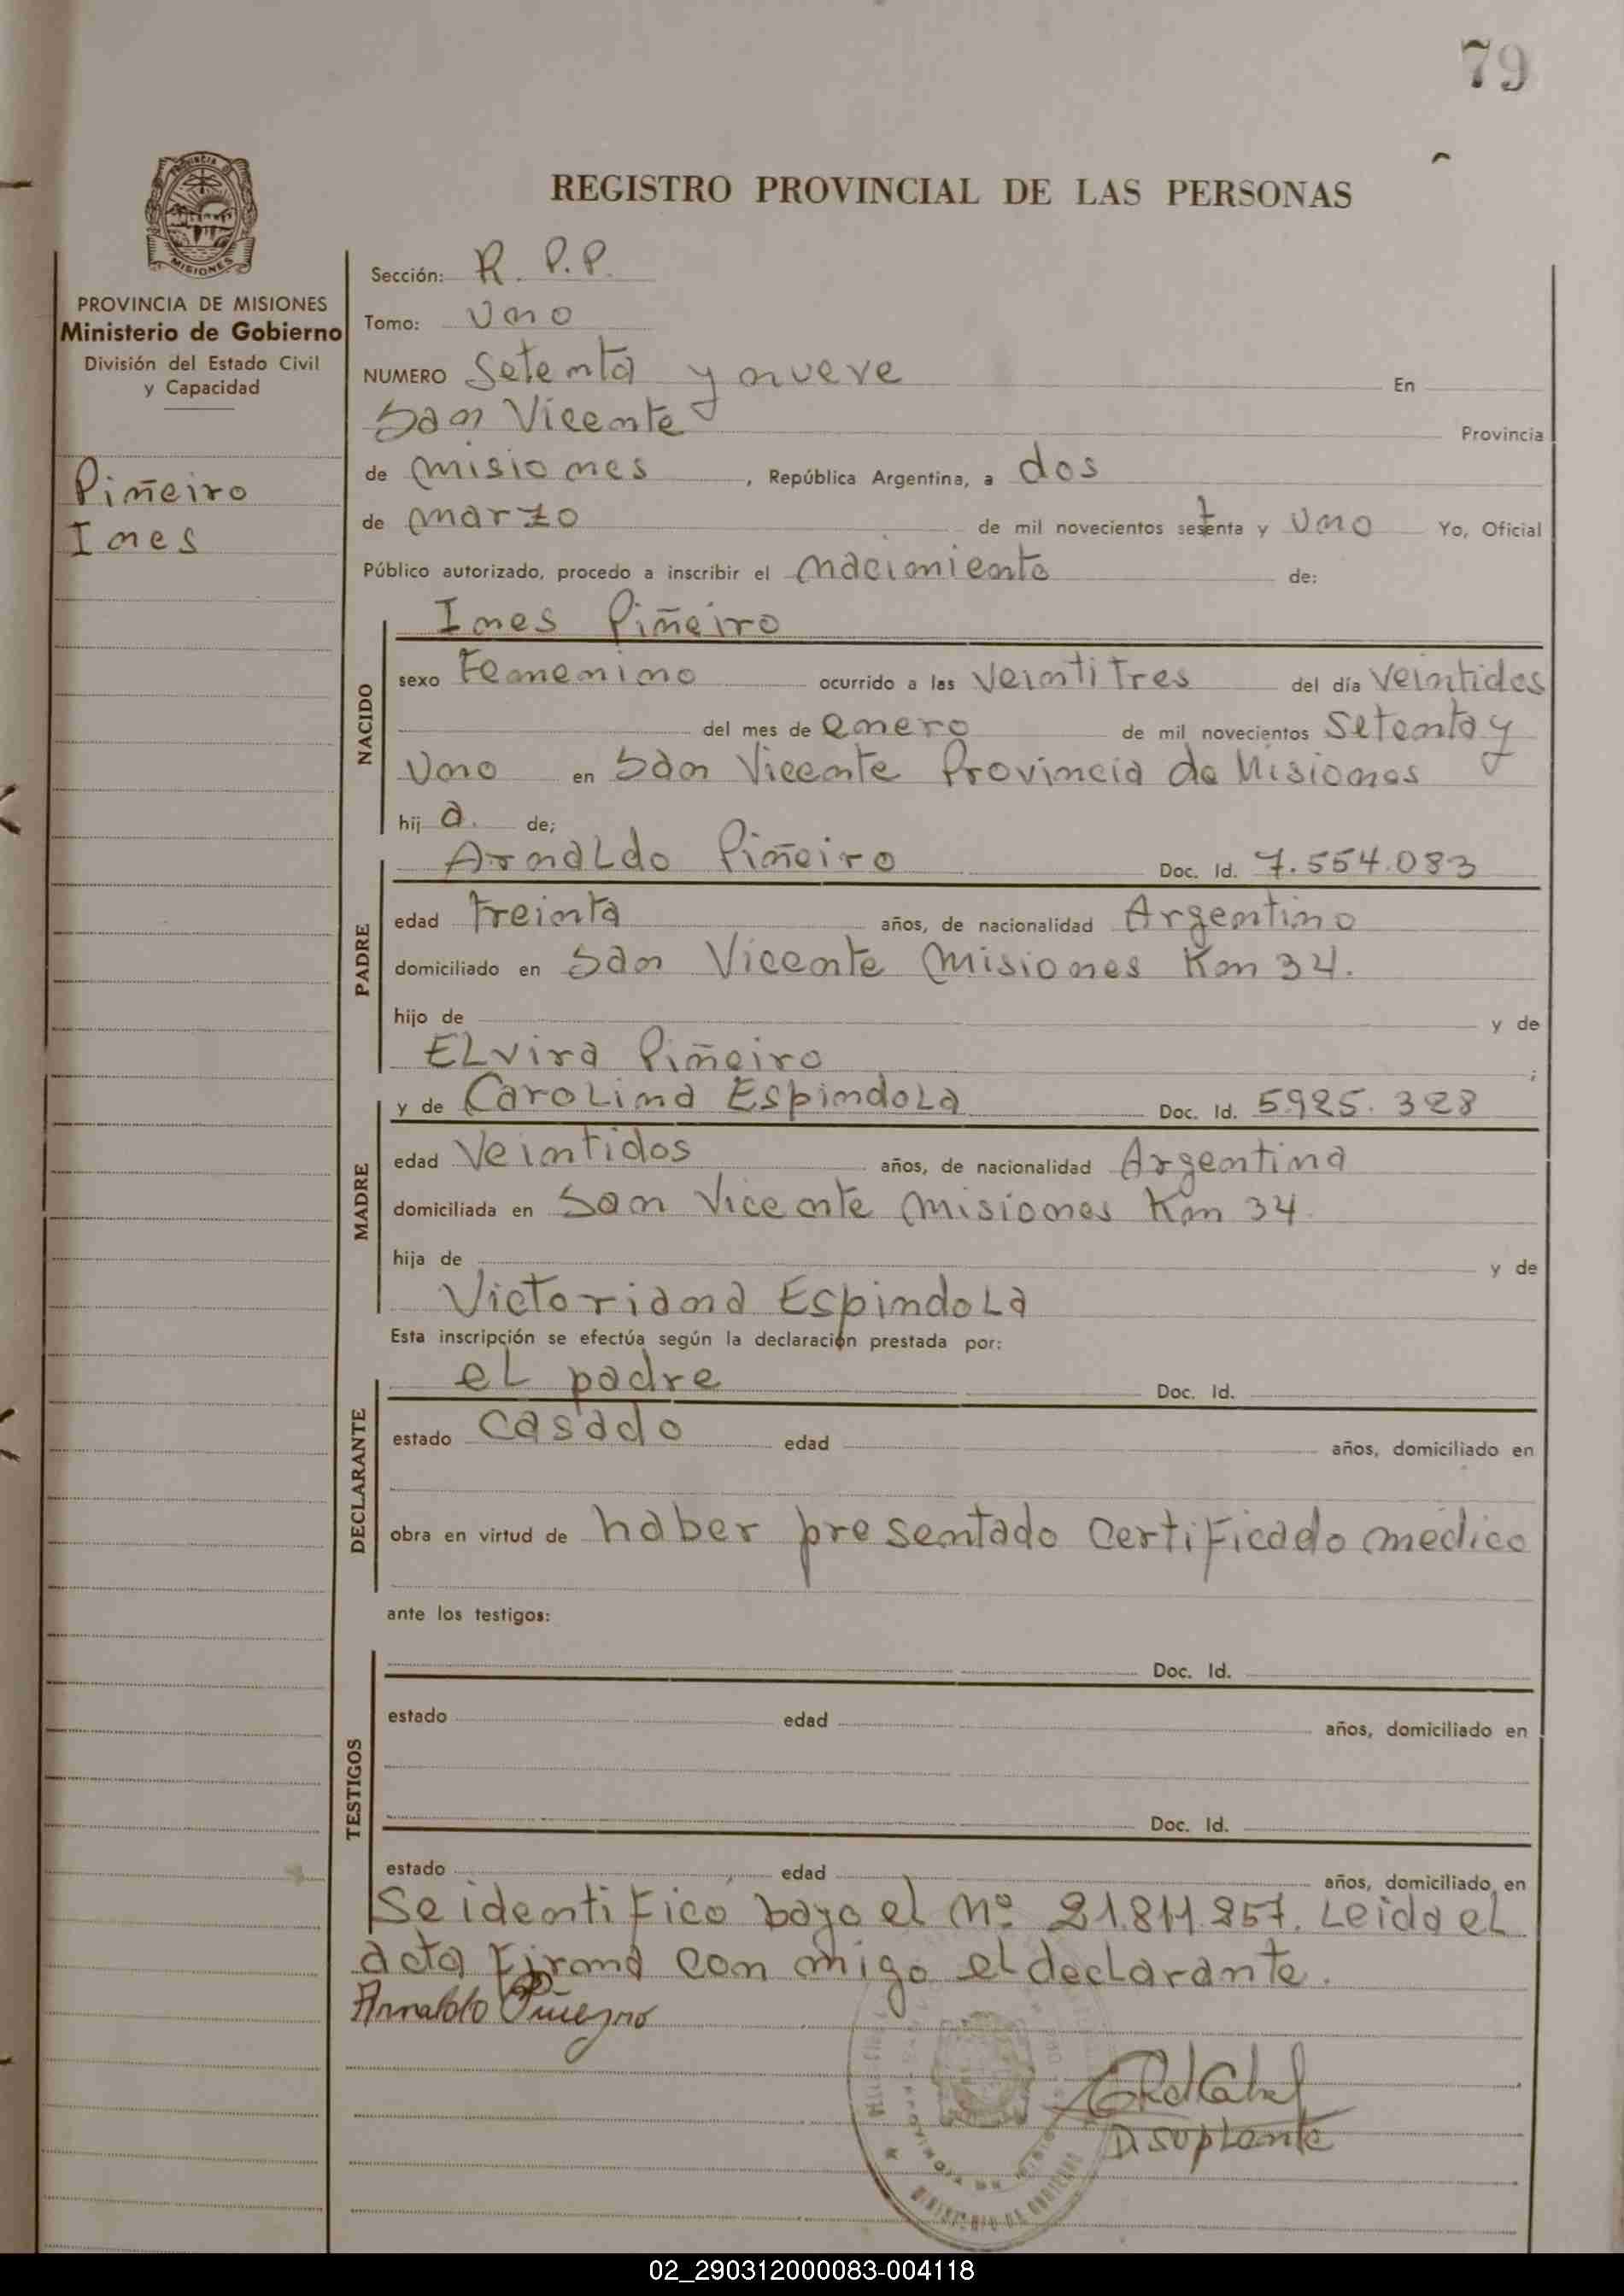 79
REGISTRO PROVINCIAL DE LAS PERSONAS
PROVINCIA DE MISIONES
Ministerio de Gobierno
División del Estado Civil
y Capacidad
Piñeiro
Ines
Sección: R. P.P.
Tomo: Uno
NUMERO Setenta y nueve En
San Vicente Provincia
de misiones, República Argentina, a dos
de marzo de mil novecientos setenta y uno Yo, Oficial
Público autorizado, procedo a inscribir el nacimiento de:
NACIDO
Ines Piñeiro
sexo Femenino ocurrido a las Veintitres del día Veintidos
del mes de enero de mil novecientos Setenta y
Uno en San Vicente Provincia de Misiones
hij a. de;
PADRE
Arnaldo Piñeiro Doc. Id. 7.554.083
edad Treinta años, de nacionalidad Argentino
domiciliado en San Vicente misiones Km 34.
hijo de y de
Elvira Piñeiro ;
MADRE
y de Carolina Espindola Doc. Id. 5.925.328
edad Veintidos años, de nacionalidad Argentina
domiciliada en San Vicente misiones Km 34
hija de y de
Victoriana Espindola
Esta inscripción se efectúa según la declaración prestada por:
DECLARANTE
el padre Doc. Id.
estado casado edad años, domiciliado en
obra en virtud de haber presentado certificado medico
ante los testigos:
TESTIGOS
Doc. Id.
estado edad años, domiciliado en
Doc. Id.
estado edad años, domiciliado en
Se identificó bajo el Nº 21.811.257. Leida el
acta firma con migo el declarante.
Arnaldo Piñeyro
D. suplente
MINISTERIO DE GOBIERNO
02_290312000083-004118